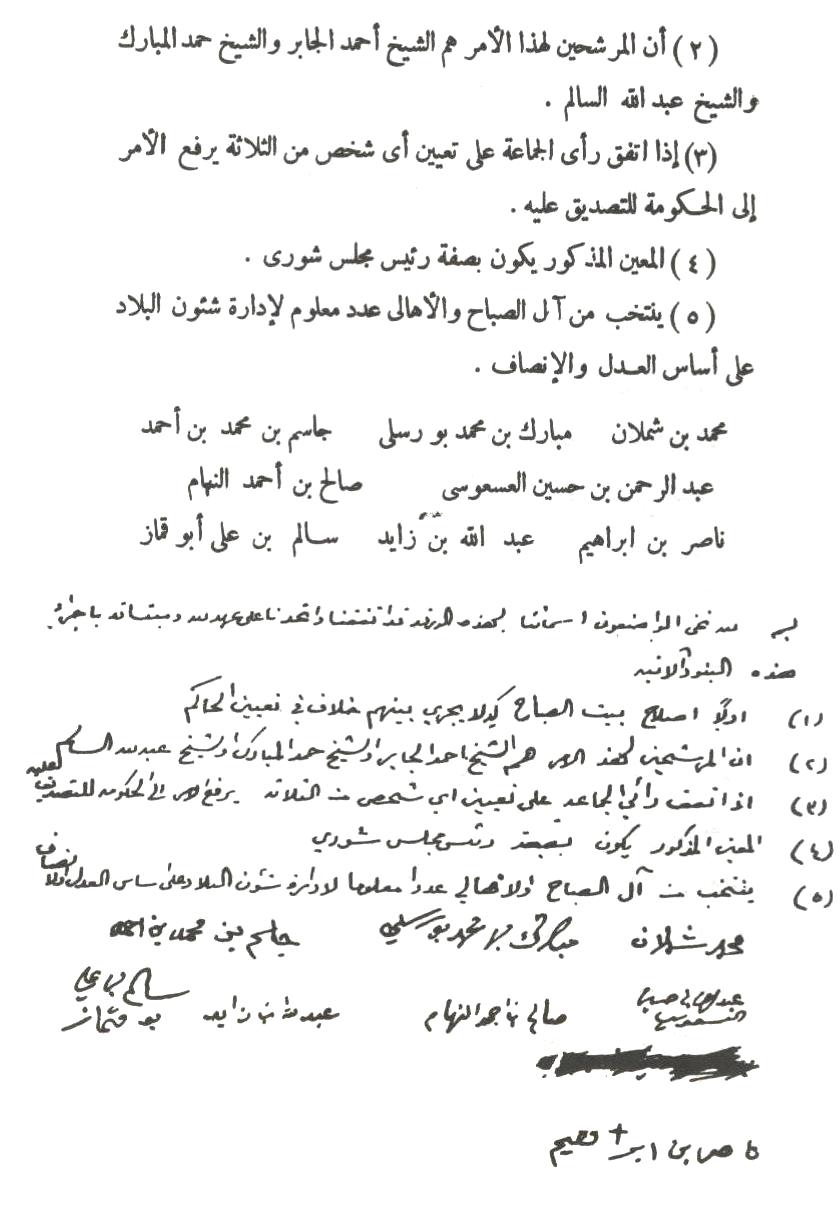 (٢) أن المرشحين لهذا الأمر هم الشيخ أحمد الجابر والشيخ حمد المبارك
والشيخ عبد الله السالم .
(٣) إذا اتفق رأى الجماعة على تعيين أى شخص من الثلاثة يرفع الأمر
إلى الحكومة للتصديق عليه .
(٤) المعين المذكور يكون بصفة رئيس مجلس شورى .
(٥) ينتخب من آل الصباح والأهالى عدد معلوم لإدارة شئون البلاد
على أساس العدل والإنصاف .
محمد بن شملان مبارك بن محمد بو رسلى جاسم بن محمد بن أحمد
عبد الرحمن بن حسين العسعوسى صالح بن أحمد النهام
ناصر بن ابراهيم عبد الله بن زايد سالم بن على أبو قماز
نحن الواضعون اسمائنا بهذه الورقه قد اتفقنا واتحدنا على عهد الله وميثاقه باجراء
هذه البنود الاتيه
(١) اولا اصلاح بيت الصباح كيلا يجري بينهم خلاف في تعيين الحاكم
(٢) ان المرشحين لهذا الامر هم الشيخ احمد الجابر والشيخ حمد المبارك والشيخ عبد الله السالم
(٣) اذا اتفق رائي الجماعه على تعيين اي شخص من الثلاثه يرفع الامر الى الحكومه للتصديق عليه
(٤) المعين المذكور يكون بصفة رئيس مجلس شوري
(٥) ينتخب من آل الصباح والاهالي عددا معلوما لادارة شئون البلاد على اساس العدل والانصاف
محمد شملان مبارك بن محمد بورسلي جاسم بن محمد بن احمد
صالح بن احمد النهام عبد الله بن زايد سالم بن علي بو قماز
ناصر بن ابراهيم